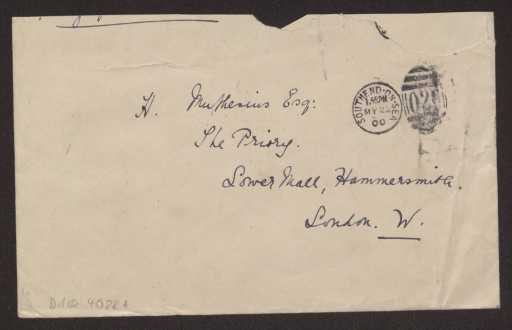 H. Muthesius Esq:
The Priory.
Lower Mall, Hammersmith.
London. W.
SOUTHEND-ON-SEA
MY 22
00